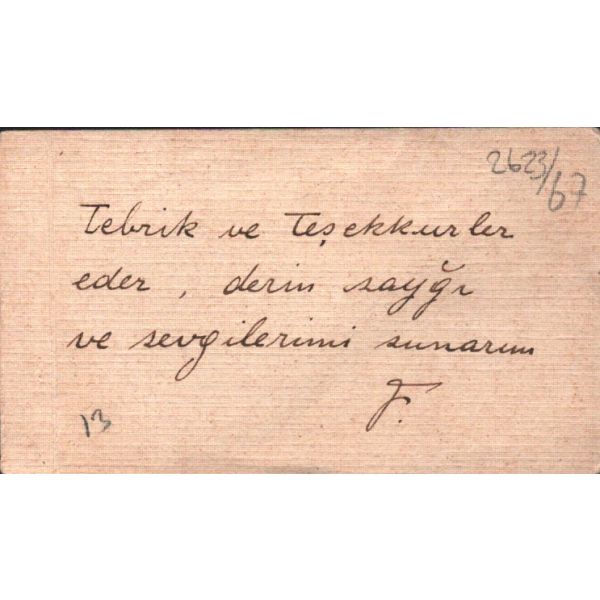 2623/67
Tebrik ve Teşekkurler
eder, derin sayğı
ve sevgilerimi sunarım
F.
13